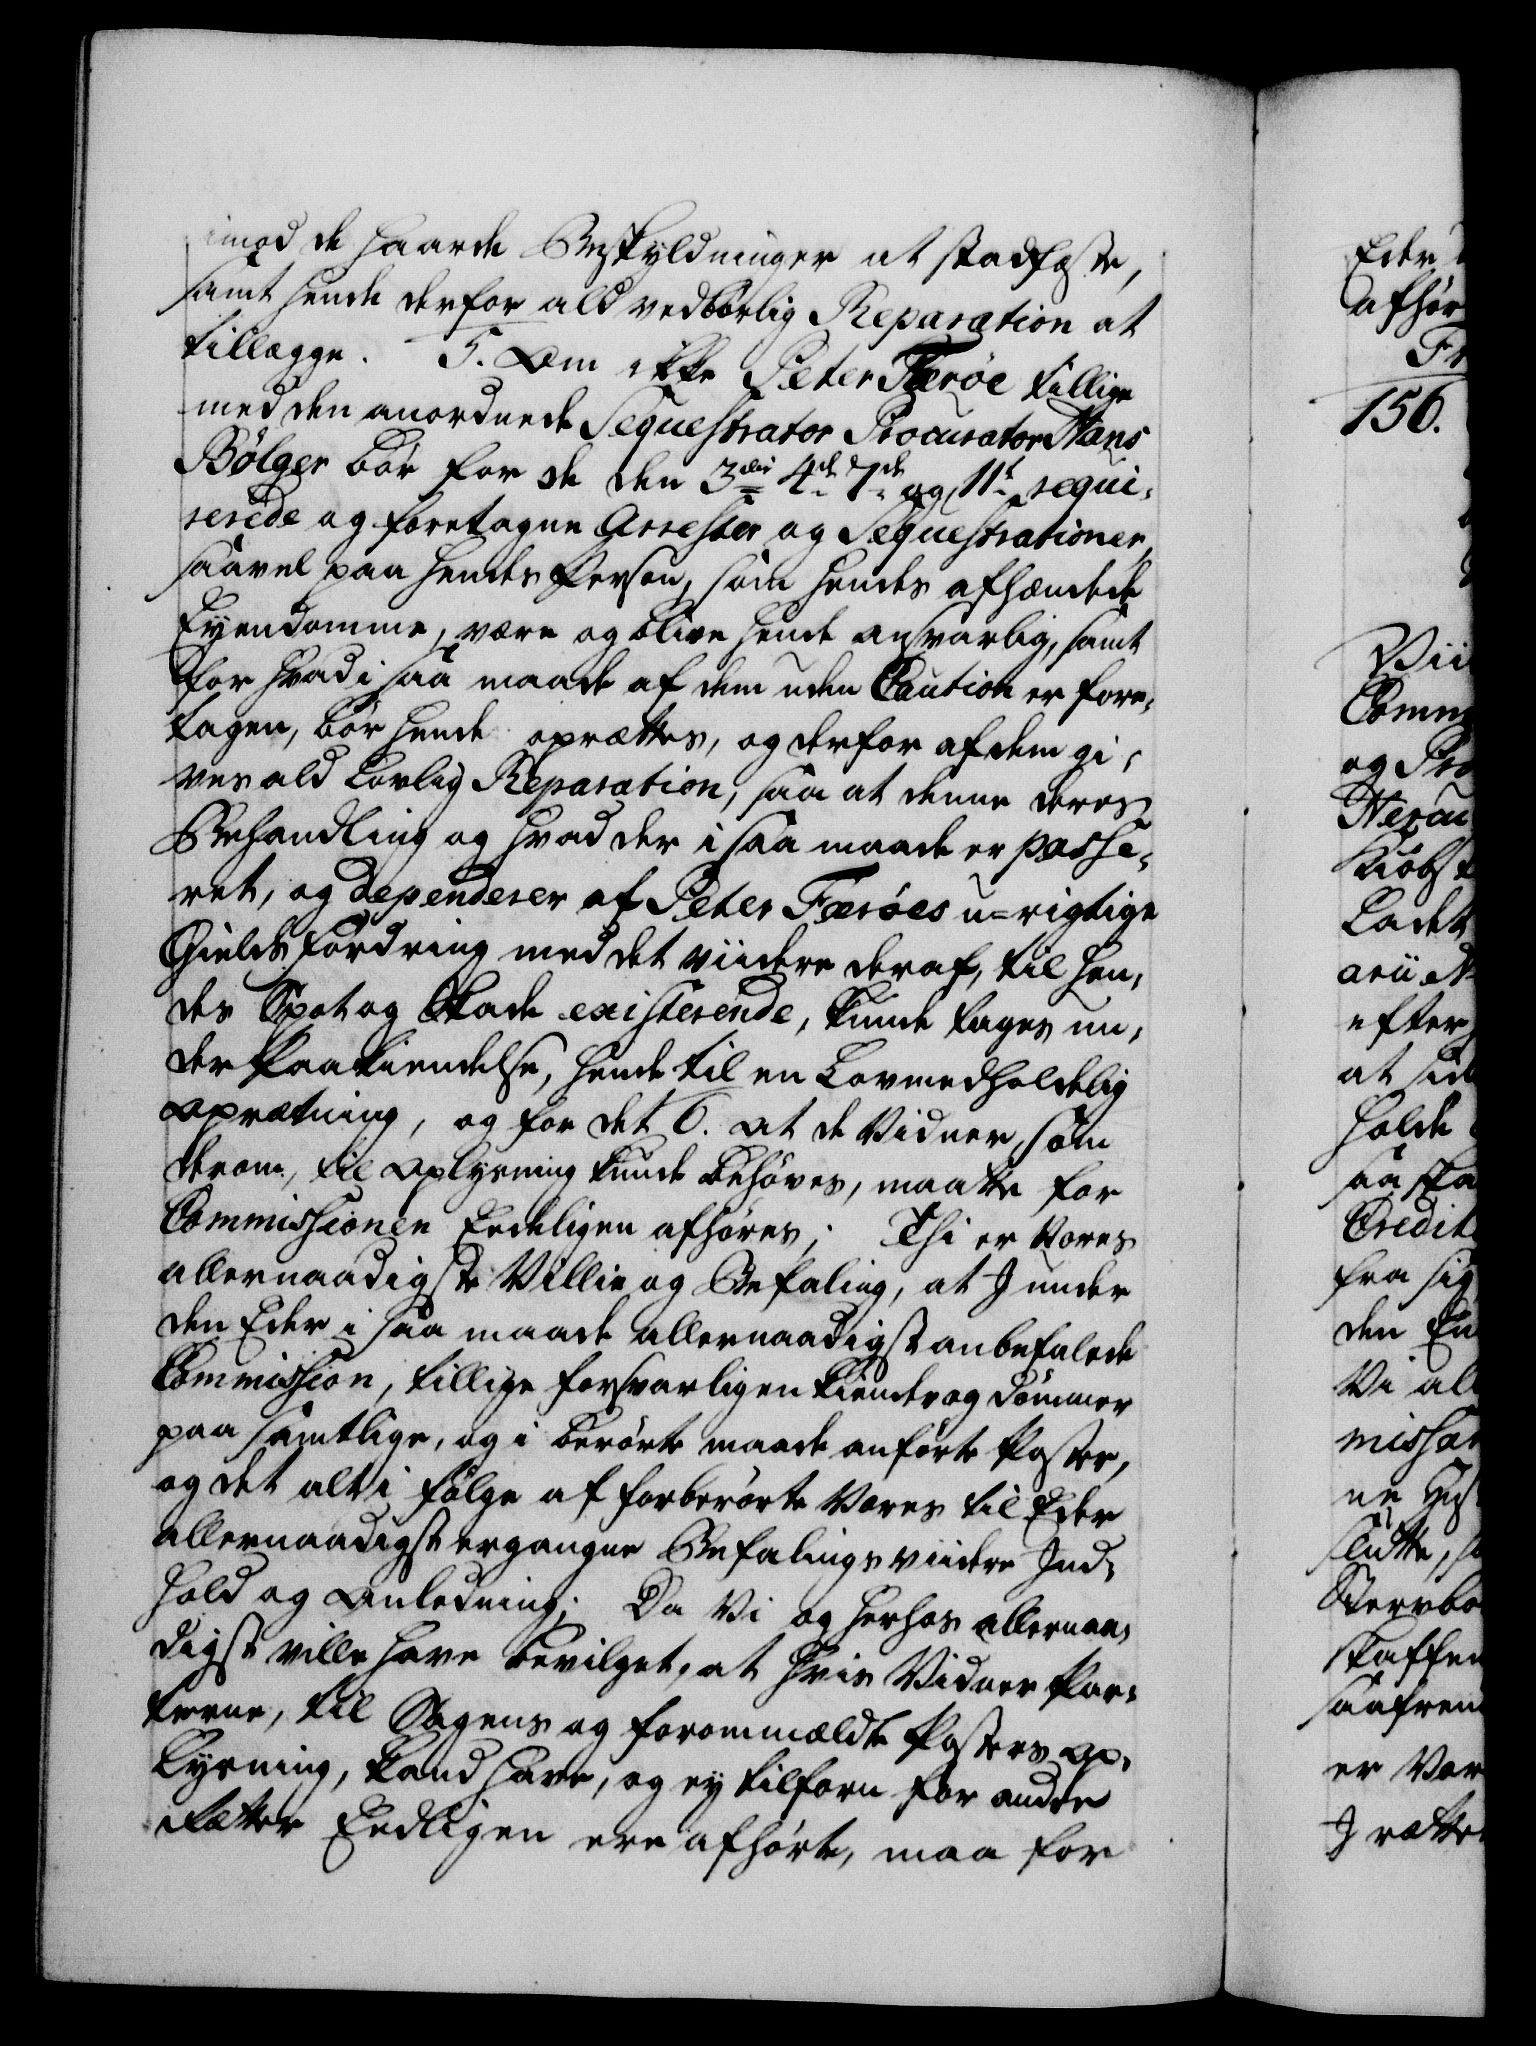 imod de haarde Beskyldninger at stadfæste,
samt hende derfor ald vedbørlig Reparation at
tillægge. 5. Om ikke Peter Færøe tillige
med den anordnede Sequestrator Procurator Hans
Bølger bør for de den 3die 4de 7de og 11te requi-
rerede og foretagne Arrester og Sequestrationer,
saavel paa hendes Person, som hendes afhændede
Eyendomme, være og blive hende ansvarlig, samt
for hvad i saa maade af dem uden Caution er fore-
tagen, bør hende oprættes, og derfor af dem gi-
ves ald lovlig Reparation, saa at denne deres
Behandling og hvad der i saa maade er passe-
ret, og dependerer af Peter Færøes u-rigtige
Gields fordring med det viidere deraf, til hen-
des Spot og Skade existerende, kunde tages un-
der Paakiendelse, hende til en Lovmedholdelig
Oprætning, og for det 6. at de Vidner, som
derom, til Oplysning kunde behøves, maatte for
Commissionen Eedeligen afhøres; Thi er Vores
allernaadigste Villie og Befaling, at I under
den Eder i saa maade allernaadigst anbefalede
Commission, tillige forsvarligen kiender og dømmer
paa samtlige, og i berørte maade anførte Poster,
og det alt i følge af forberørte Vores til Eder
allernaadigst ergangne Befalings viidere Ind-
hold og Anledning; Da Vi og herhos allernaa-
digst ville have bevilget, at hvis Vidner Par-
terne, til Sagens og forommældte Posters Op-
lysning, kand have, og ey tilforn for andre
Rætter Eedligen ere afhørte, maa for
Eder
afhør
Fr
156.
Vii
Comm
og Pro
Kiøbst
Ladet
efter
at sid
holde
saa sta
Credit
fra sig
den En
Vi all
missar
ne Hus
slutte, s
Stervbo
skaffen
saafrem
er Vor
I rette